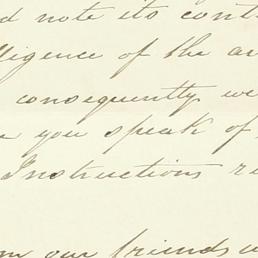 d note its cont
lligence of the ar
consequently we
you speak of
Instructions re
our friends